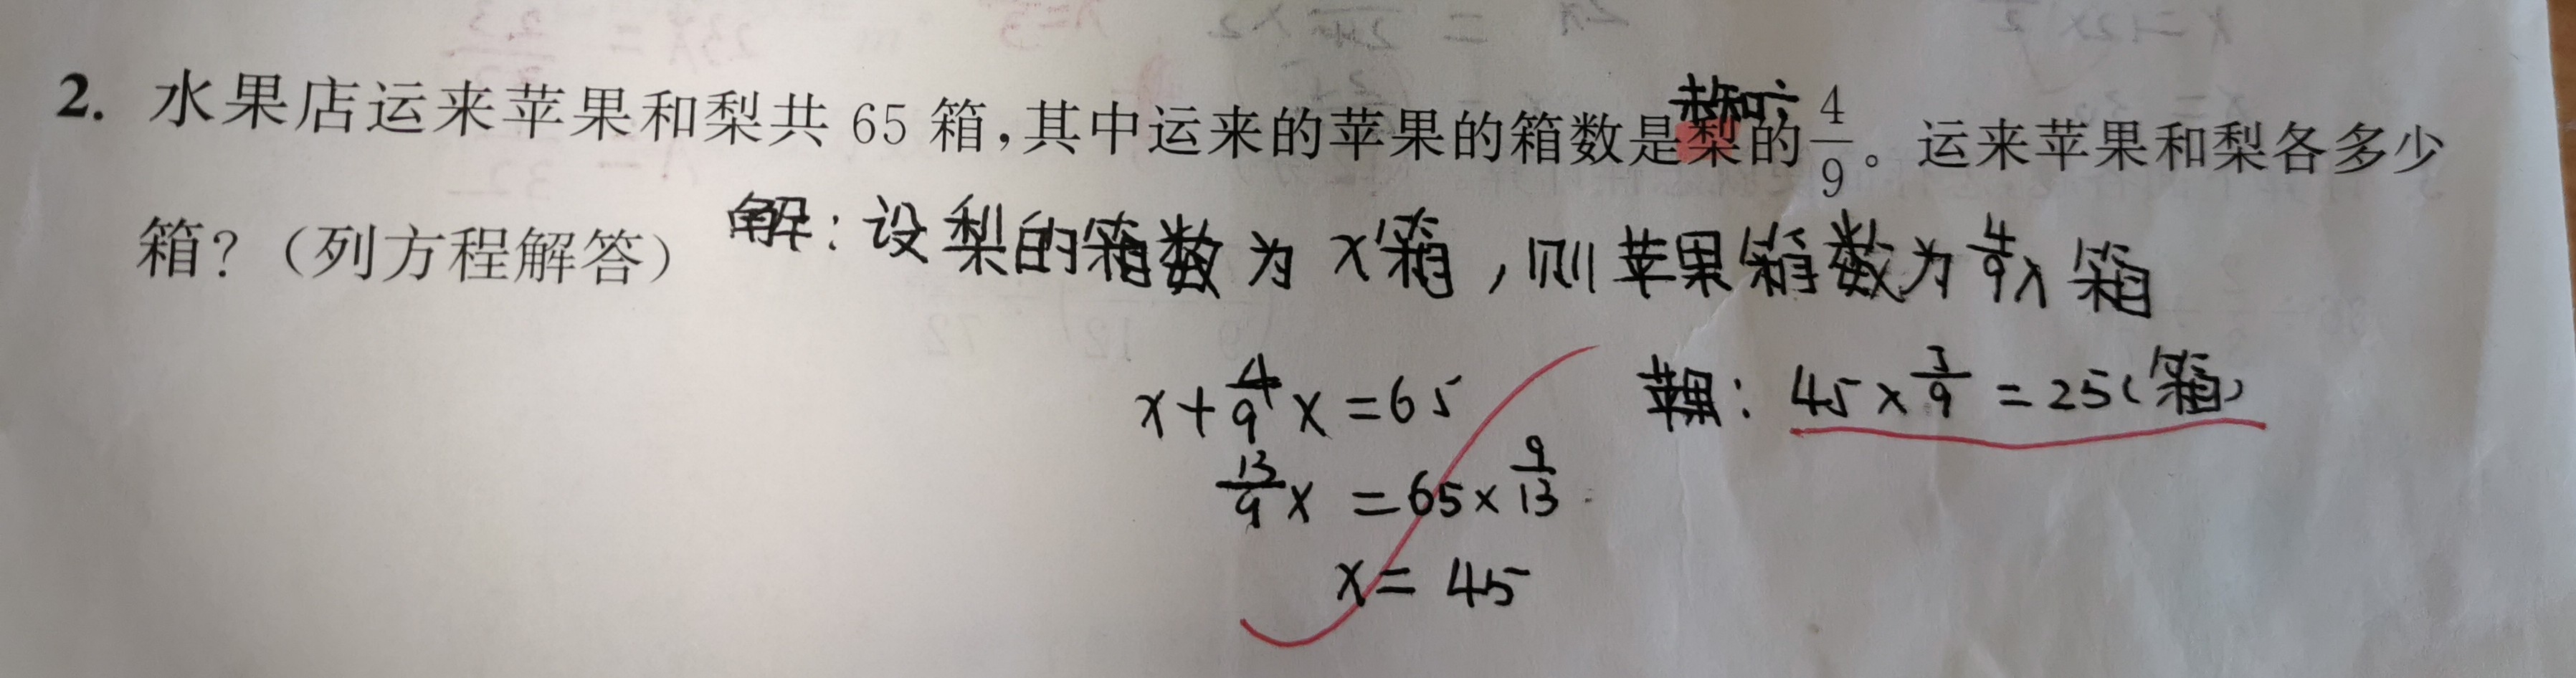 2. 水果店运来苹果和梨共 65 箱,其中运来的苹果的箱数是梨的 4/9。运来苹果和梨各多少
箱?(列方程解答) 解:设梨的箱数为 x箱,则苹果箱数为 4/9 x 箱
x+4/9x=65 苹果:45×5/9=25(箱)
13/9x=65×9/13
x=45